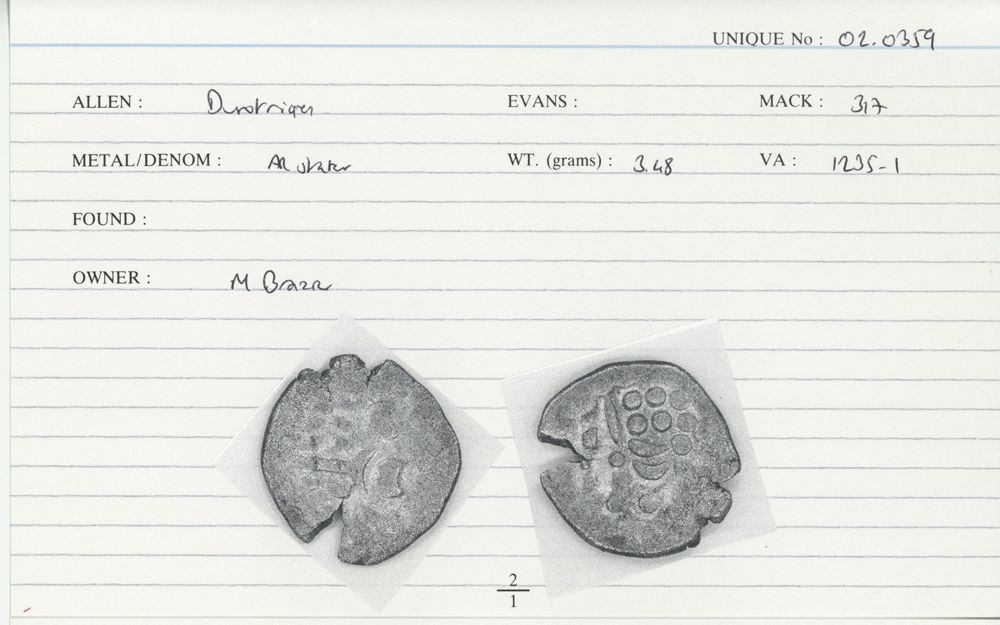 UNIQUE No : 02.0359
ALLEN : Durotriges EVANS : MACK : 317
METAL/DENOM : AR stater WT. (grams) : 3.48 VA : 1235-1
FOUND :
OWNER : M
2
1